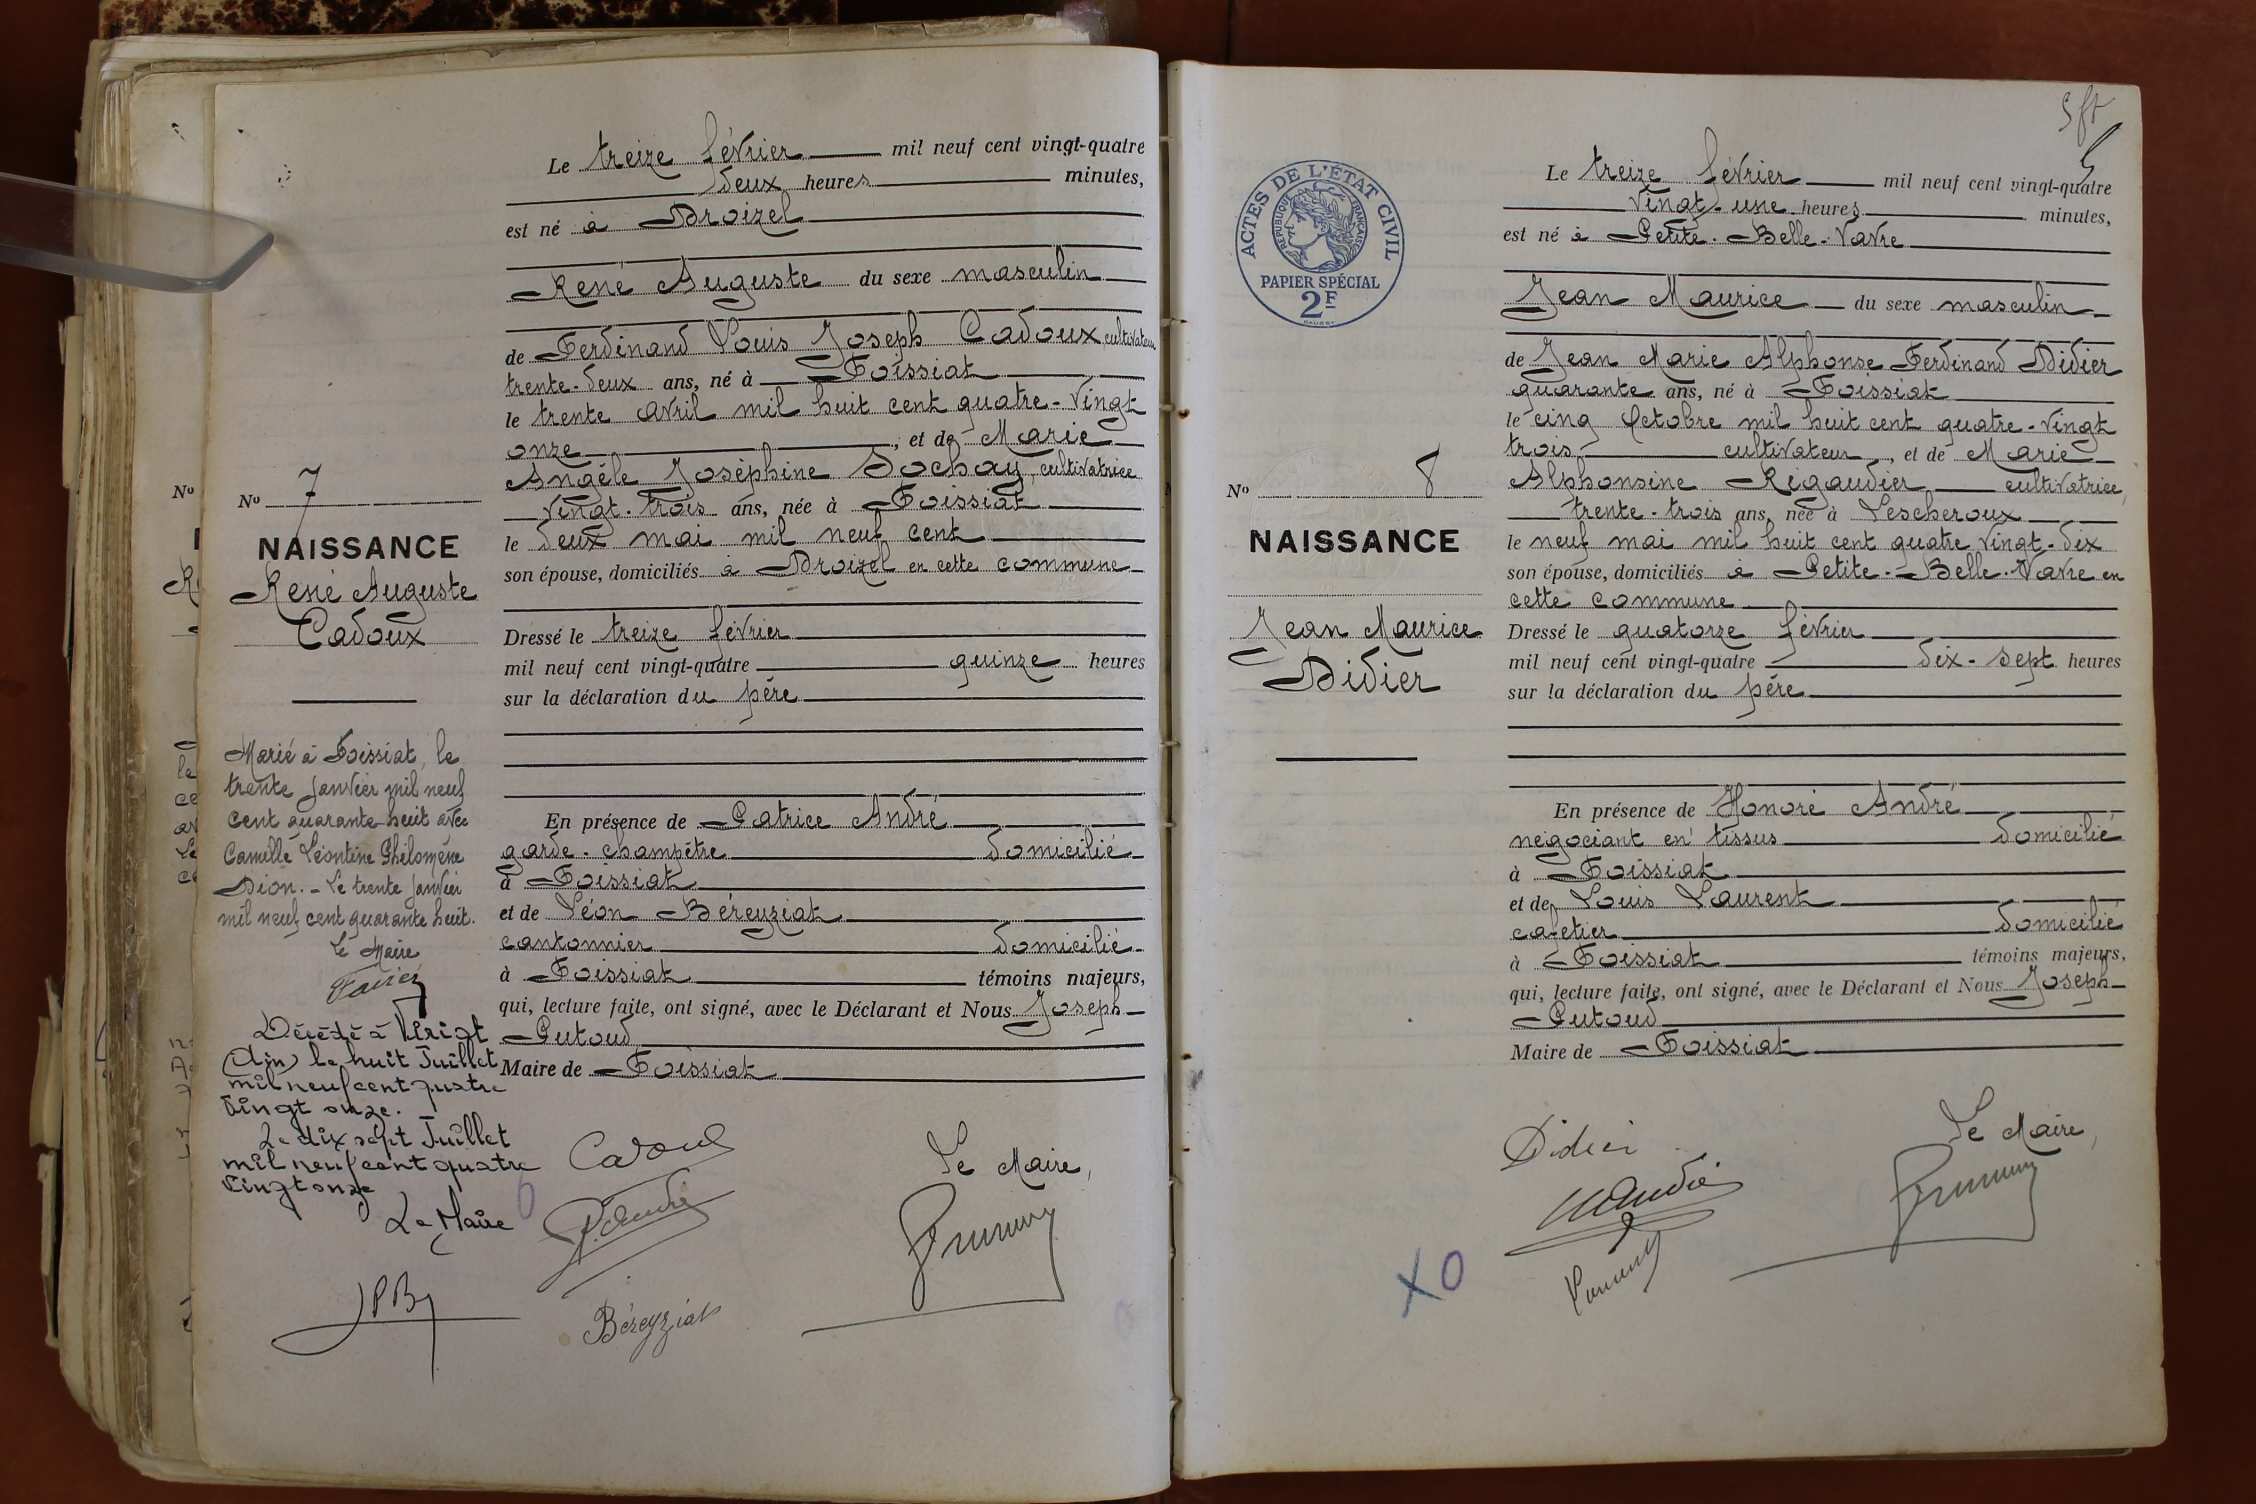 Le treize février mil neuf cent vingt-quatre
deux heures minutes,
est né à Droizel
René Auguste du sexe masculin
de Ferdinand Louis Joseph Cadoux cultivateur
trente-deux ans, né à Foissiat
le trente avril mil huit cent quatre-vingt
onze, et de Marie
Angèle Joséphine Sochay, cultivatrice
vingt-trois ans, née à Foissiat
le deux mai mil neuf cent
son épouse, domiciliés à Droizel en cette commune
Dressé le treize février
mil neuf cent vingt-quatre quinze heures
sur la déclaration du père
En présence de Patrice André
garde-champêtre domicilié
à Foissiat
et de Léon Béreyziat
cantonnier domicilié
à Foissiat témoins majeurs,
qui, lecture faite, ont signé, avec le Déclarant et Nous Joseph
Putoud
Maire de Foissiat
Cadoux
P. André
Béreyziat
Le Maire,
No
No 7
NAISSANCE
René Auguste
Cadoux
Marié à Foissiat, le
trente janvier mil neuf
cent quarante-huit avec
Camille Léontine Philomène
Dion. - Le trente janvier
mil neuf cent quarante huit.
Le Maire
Décédé à Viriat
(Ain) le huit Juillet
mil neuf cent quatre
vingt onze.
Le dix sept Juillet
mil neuf cent quatre
vingt onze
Le Maire
JPB
5
Le treize février mil neuf cent vingt-quatre
vingt-une heures minutes,
est né à Petite-Belle-Vavre
Jean Maurice du sexe masculin
de Jean Marie Alphonse Ferdinand Didier
quarante ans, né à Foissiat
le cinq Octobre mil huit cent quatre-vingt
trois cultivateur, et de Marie
Alphonsine Rigaudier cultivatrice,
trente-trois ans, née à Lescheroux
le neuf mai mil huit cent quatre vingt-dix
son épouse, domiciliés à Petite-Belle-Vavre en
cette commune
Dressé le quatorze février
mil neuf cent vingt-quatre dix-sept heures
sur la déclaration du père
En présence de Honoré André
négociant en tissus domicilié
à Foissiat
et de Louis Laurent
cafetier domicilié
à Foissiat témoins majeurs,
qui, lecture faite, ont signé, avec le Déclarant et Nous Joseph
Putoud
Maire de Foissiat
Didier
Le Maire,
XO
ACTES DE L'ÉTAT CIVIL
RÉPUBLIQUE FRANÇAISE
PAPIER SPÉCIAL
2F
No 8
NAISSANCE
Jean Maurice
Didier